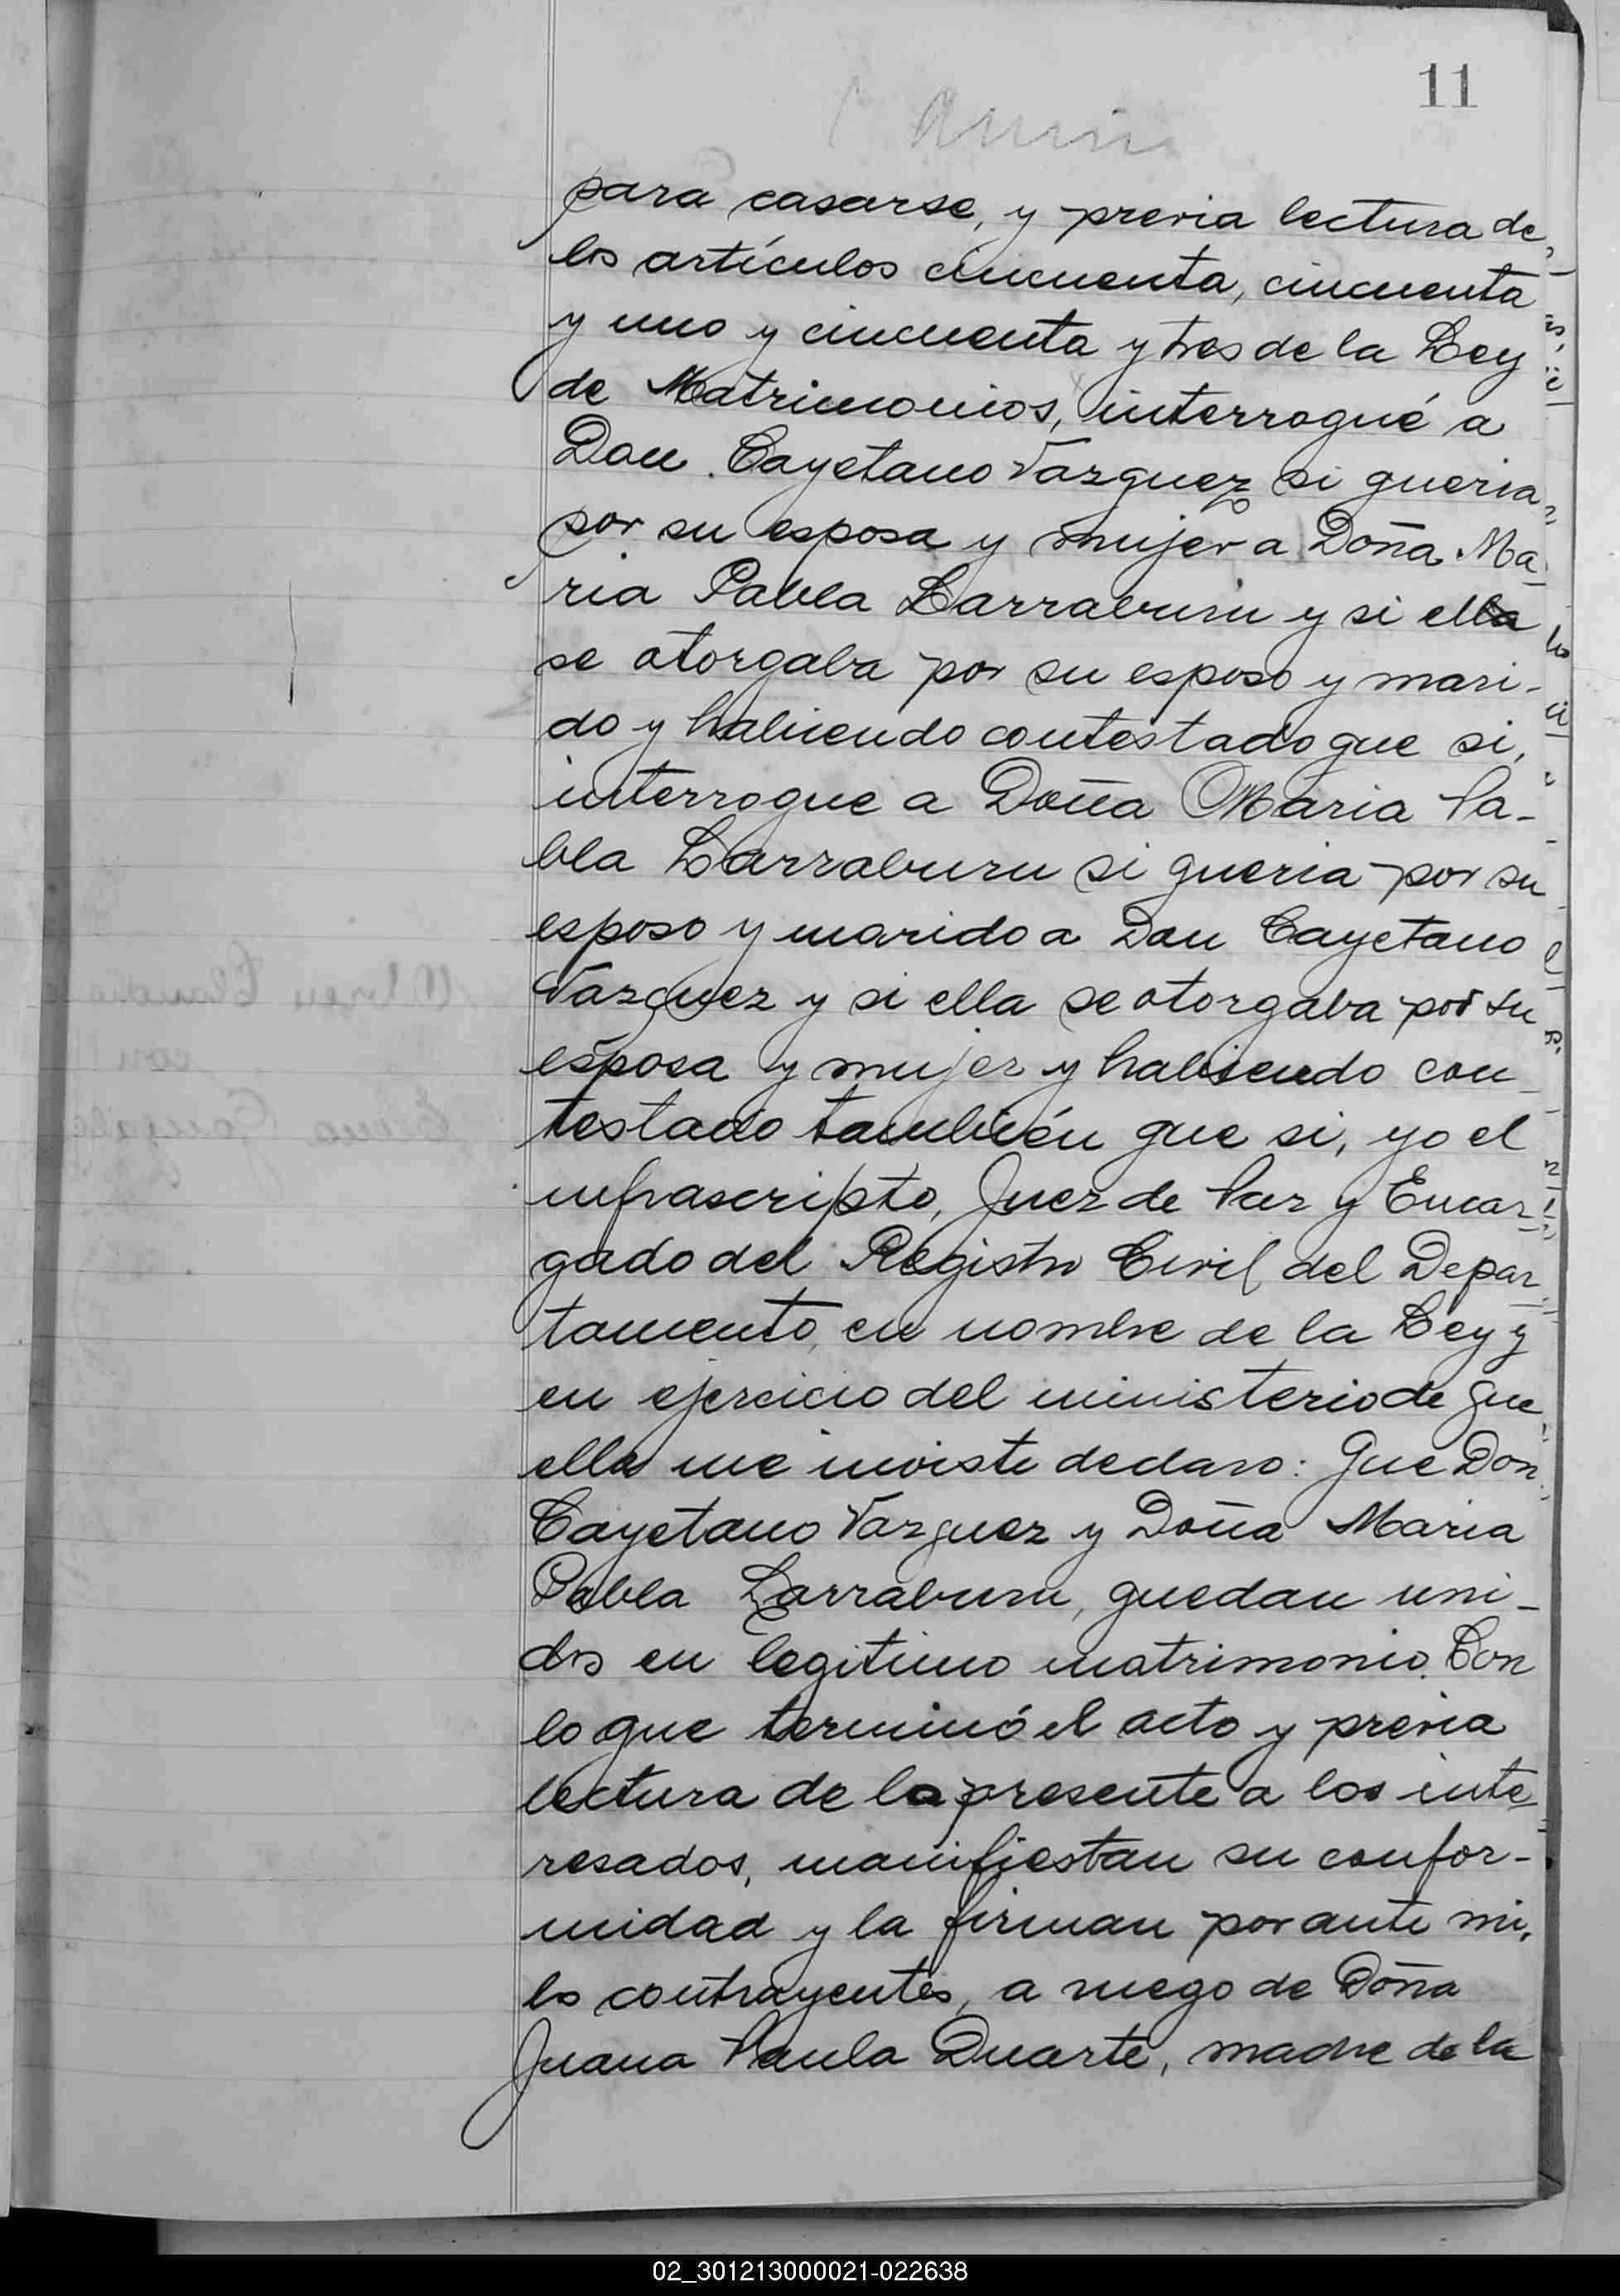 11
para casarse, y previa lectura de
los artículos cincuenta, cincuenta
y uno y cincuenta y tres de la Ley
de Matrimonios, interrogué a
Don Cayetano Vazquez si queria
por su esposa y mujer a Doña Ma-
ria Pabla Larraburu y si ella
se otorgaba por su esposo y mari-
do y habiendo contestado que si,
interrogue a Doña Maria Pa-
bla Larraburu si queria por su
esposo y marido a Don Cayetano
Vazquez y si ella se otorgaba por su
esposa y mujer y habiendo con-
testado también que si, yo el
infrascripto, Juez de Paz y Encar-
gado del Registro Civil del Depar-
tamento, en nombre de la Ley y
en ejercicio del ministerio de que
ella me inviste declaro: Que Don
Cayetano Vazquez y Doña Maria
Pabla Larraburu, quedan uni-
dos en legitimo matrimonio. Con
lo que terminó el acto y previa
lectura de la presente a los inte-
resados, manifiestan su confor-
midad y la firman por ante mi,
los contrayentes, a ruego de Doña
Juana Paula Duarte, madre de la
02_301213000021-022638